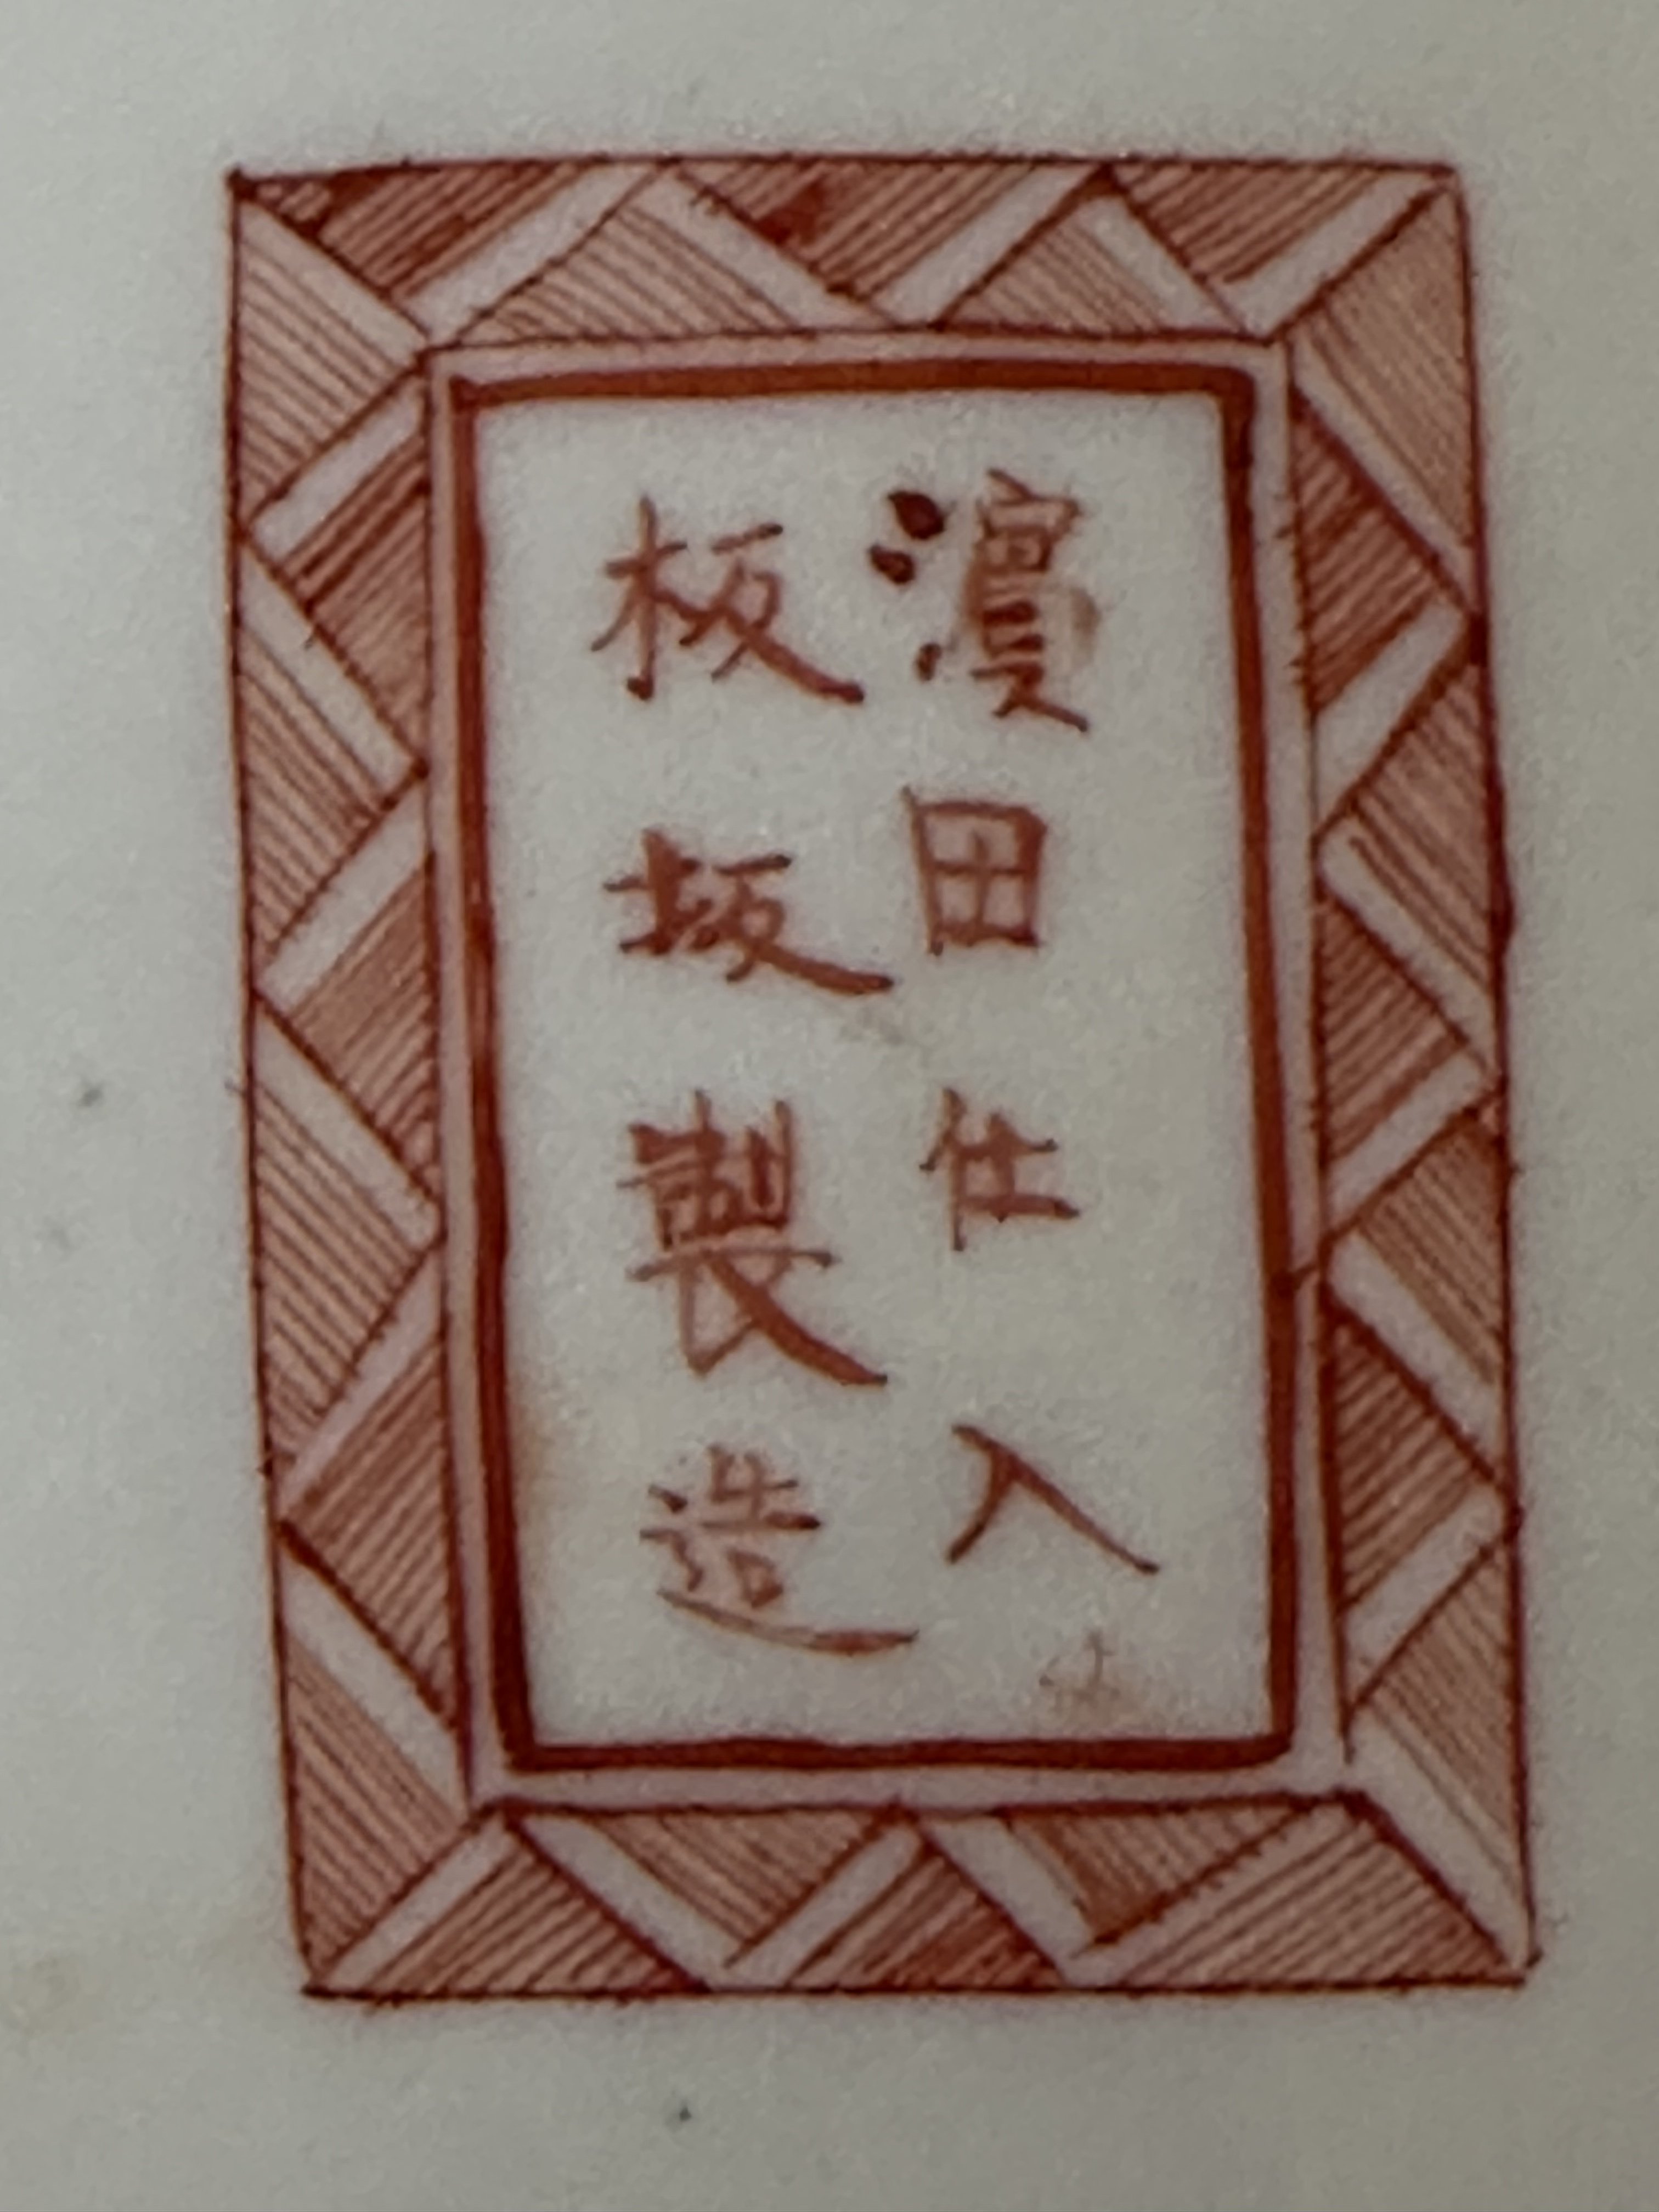 濵田仕入
板坂製造